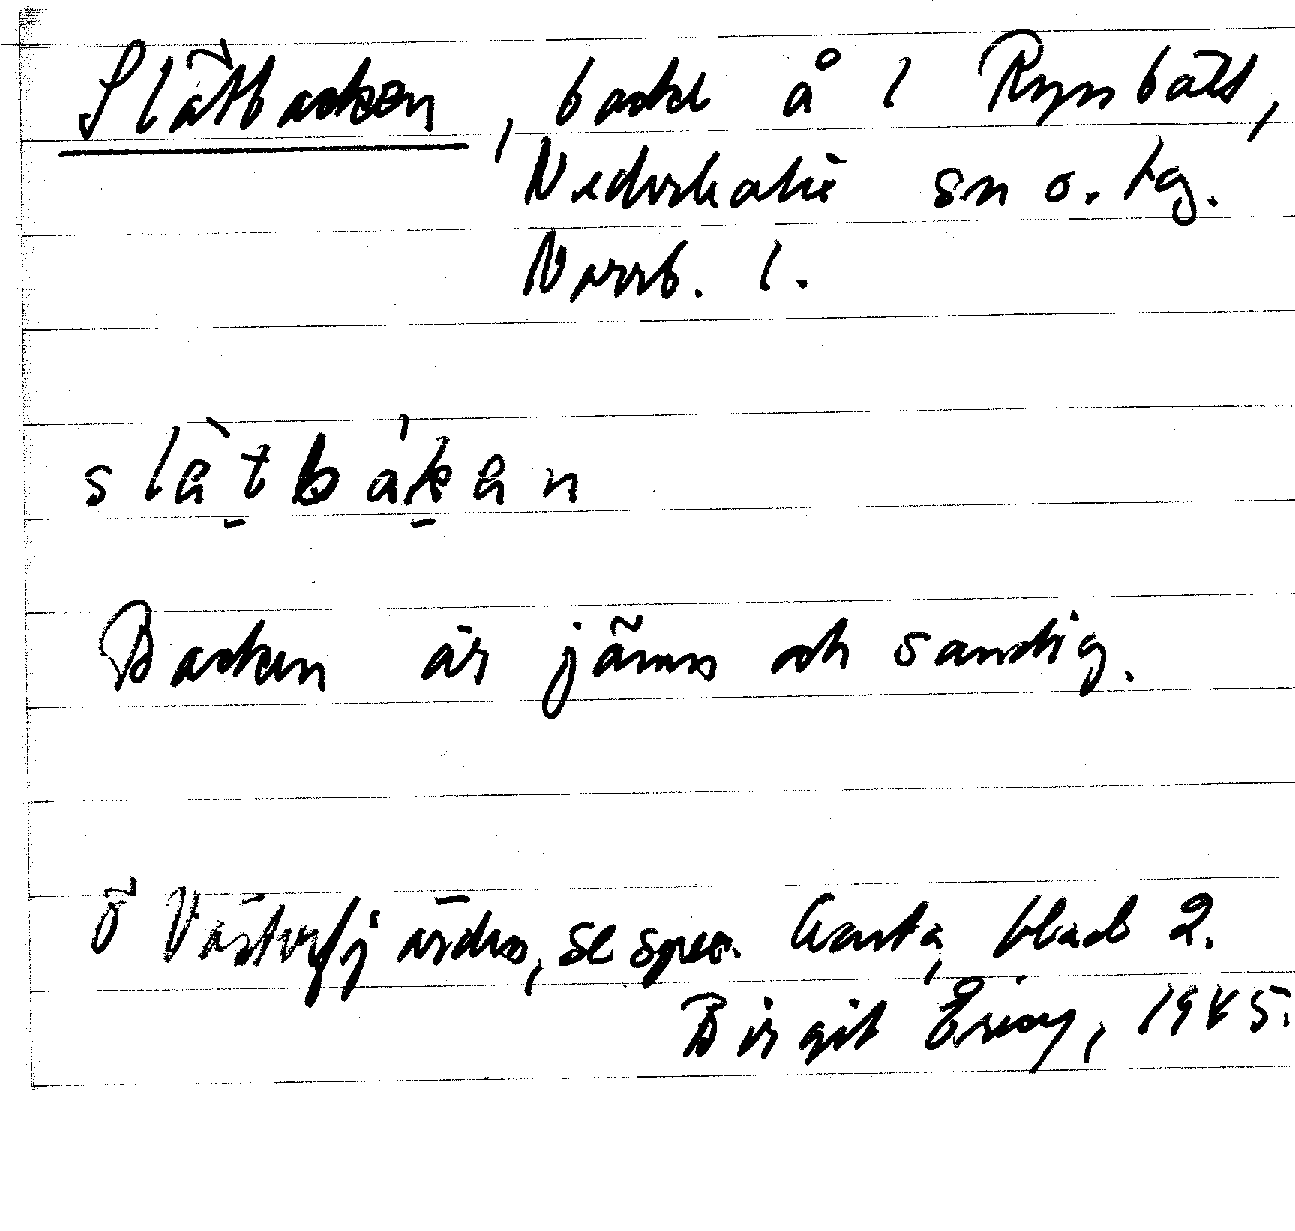 Slätbacken, backe å l Rynbäck,
Nederkalix sn o. tg.
Norrb. l.
slàt̠bák̠an
Backen är jämn och sandig.
ö Västerfjärden, se spec. karta, blad 2.
Birgit 1945.